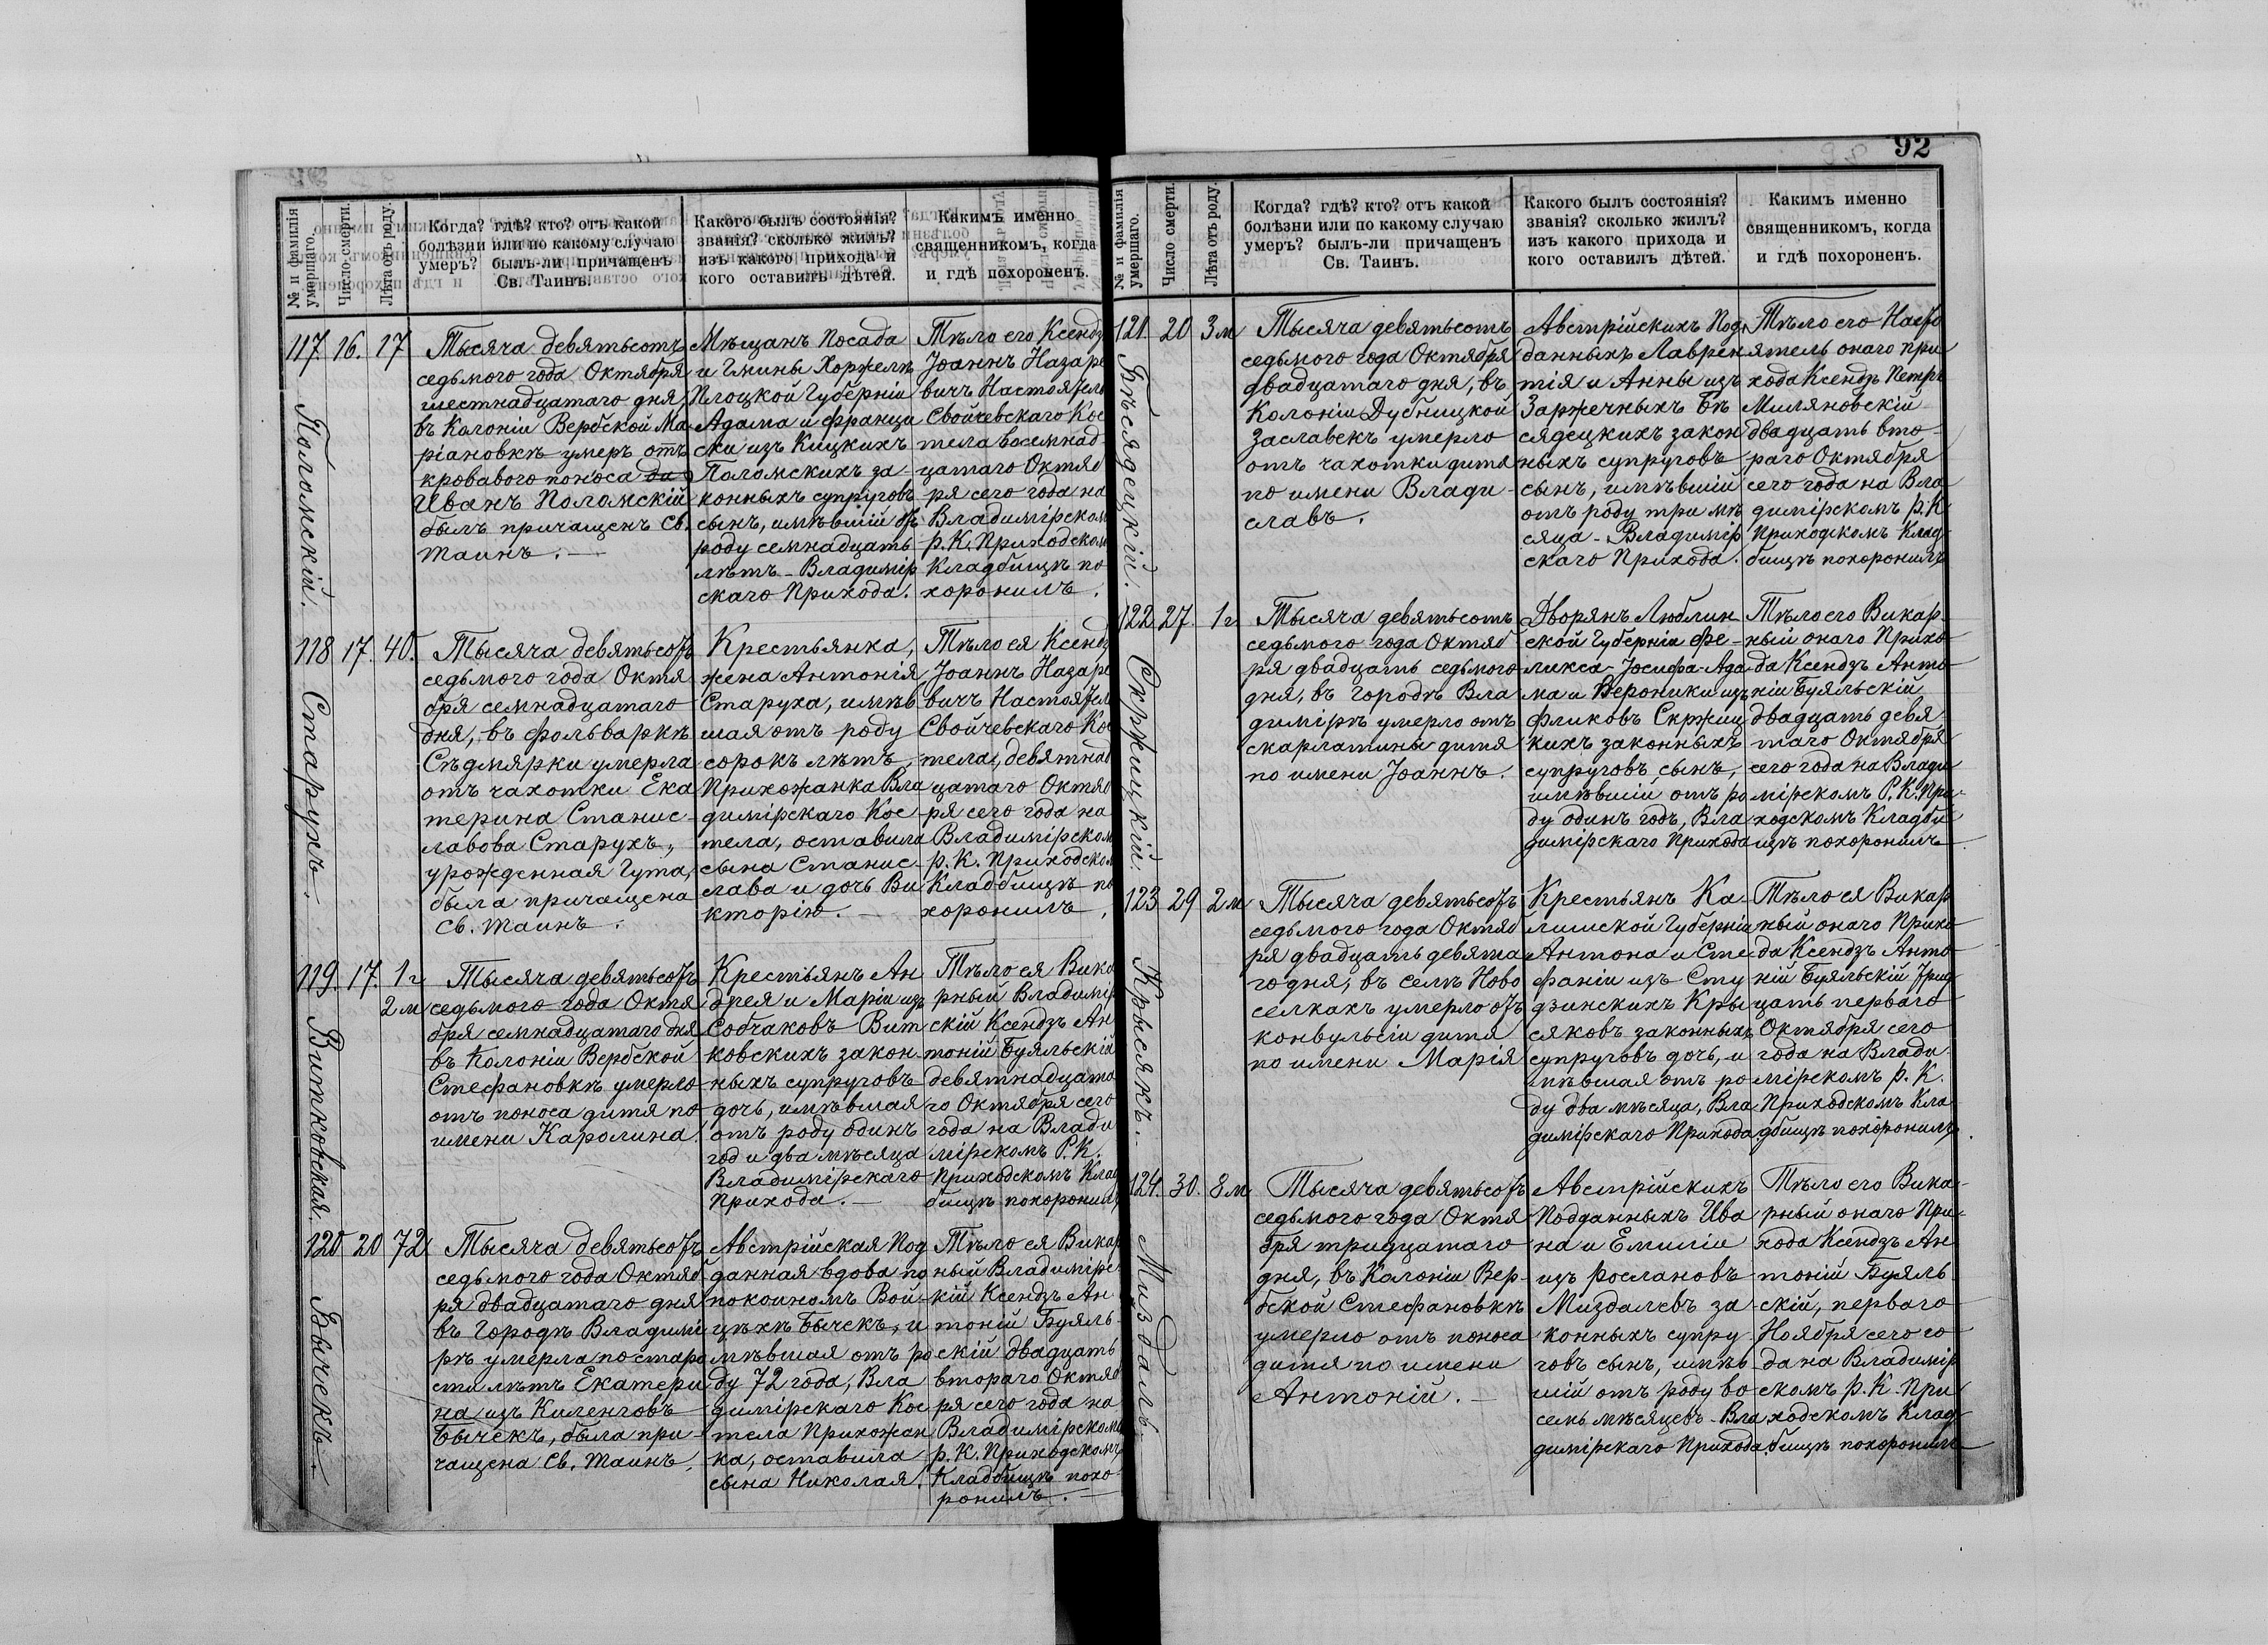 92
№ и фамилія
умершаго.
Число смерти.
Лѣта отъ роду.
Когда? гдѣ? кто? отъ какой
болѣзни или по какому случаю
умеръ? былъ-ли причащенъ
Св. Таинъ.
Какого былъ состоянія?
званія? сколько жилъ?
изъ какого прихода и
кого оставилъ дѣтей.
Какимъ именно
священникомъ, когда
и гдѣ похороненъ.
117
Поломскій.
16.
17
Тысяча девятьсотъ
седьмого года Октября
шестнадцатаго дня
въ Колоніи Вербской Ма-
ріановкѣ умеръ отъ
кроваваго поноса
Иванъ Поломскій
былъ причащенъ Св.
Таинъ.
Мѣщанъ Посада
и Гмины Хоржеле
Плоцкой Губерніи
Адама и Францы
ски изъ Кицкихъ
Поломскихъ за-
конныхъ супруговъ
сынъ, имѣвшій отъ
роду семнадцать
лѣтъ - Владимір
скаго Прихода.
Тѣло его Ксендзъ
Іоаннъ Назаре
вичъ Настоятель
Свойчевскаго Кос
тела восемнад
цатаго Октяб
ря сего года на
Владимірском
Р. К. Приходском
Кладбищѣ по
хоронилъ.
118
Старухъ.
17.
40.
Тысяча девятьсотъ
седьмого года Октя
бря семнадцатаго
дня, въ фольваркѣ
Сѣдмярки умерла
отъ чахотки Ека
терина Станис-
лавова Старухъ,
урожденная Гута,
была причащена
Св. Таинъ.
Крестьянка,
жена Антонія
Старуха, имѣв
шая отъ роду
сорокъ лѣтъ,
Прихожанка Вла
димірскаго Кос-
тела, оставила
сына Станис-
лава и дочь Ви
кторію.
Тѣло ея Ксендз
Іоаннъ Назаре
вичъ Настоятел
Свойчевскаго Кос
тела, девятнад
цатаго Октяб
ря сего года на
Владимірском
Р. К. Приходском
Кладбищѣ по
хоронилъ.
119.
Витковская.
17.
1 г
2 м
Тысяча девятьсотъ
седьмого года Октя
бря семнадцатаго дня
въ Колоніи Вербской
Стефановкѣ умерло
отъ поноса дитя по
имени Каролина.
Крестьянъ Ан
дрея и Маріи изъ
Собчаковъ Вит
ковскихъ закон-
ныхъ супруговъ
дочь, имѣвшая
отъ роду одинъ
год и два мѣсяца
Владимірскаго
Прихода.
Тѣло ея Вика
рный Владимір
скій Ксендзъ Ан
тоній Буяльскій
девятнадцата
го Октября сего
года на Влади
мірскомъ Р. К.
Приходскомъ Клад
бищѣ похоронилъ
120
Бычекъ.
20
72
Тысяча девятьсотъ
седьмого года Октяб
ря двадцатаго дня
въ Городѣ Владимі
рѣ умерла по старо
сти лѣтъ Екатери
на изъ Киленговъ
Бычекъ, была при-
чащена Св. Таинъ.
Австрійская Под
данная вдова по
покойномъ Вой-
цѣхѣ Бычекъ, и
мѣвшая отъ ро
ду 72 года, Вла
димірскаго Кос
тела Прихожан
ка, оставила
сына Николая.
Тѣло ея Викар
ный Владимірс
кій Ксендзъ Ан
тоній Буяль-
скій двадцать
втораго Октяб
ря сего года на
Владимірскомъ
Р. К. Приходскомъ
Кладбищѣ похо-
ронилъ.
№ и фамилія
умершаго.
Число смерти.
Лѣта отъ роду.
Когда? гдѣ? кто? отъ какой
болѣзни или по какому случаю
умеръ? былъ-ли причащенъ
Св. Таинъ.
Какого былъ состоянія?
званія? сколько жилъ?
изъ какого прихода и
кого оставилъ дѣтей.
Какимъ именно
священникомъ, когда
и гдѣ похороненъ.
121.
Бѣсядецкій.
20
3 м
Тысяча девятьсотъ
седьмого года Октября
двадцатаго дня, въ
Колоніи Дубницкой
Заславекъ умерло
отъ чахотки дитя
по имени Влади-
славъ.
Австрійскихъ Под-
данныхъ Лаврен
тія и Анны изъ
Заржечныхъ Бѣ
сядецкихъ закон
ныхъ супруговъ
сынъ, имѣвшій
отъ роду три мѣ
сяца - Владимір
скаго Прихода.
Тѣло его Насто
ятель онаго При
хода Ксендзъ Петръ
Миляновскій
двадцать вто-
раго Октября
сего года на Вла-
димірскомъ Р. К.
Приходскомъ Клад-
бищѣ похоронилъ
122.
Скржицкій.
27.
1 г
Тысяча девятьсотъ
седьмого года Октяб
ря двадцать седьмого
дня, въ Городѣ Вла
димірѣ умерло отъ
скарлатины дитя
по имени Іоаннъ.
Дворянъ Люблин
ской Губерніи Фе-
ликса-Іосифа-Ада
ма и Вероники изъ
Фликовъ Скржиц
кихъ законныхъ
супруговъ сынъ,
имѣвшій отъ ро
ду одинъ годъ, Вла
димірскаго Прихода
Тѣло его Викар-
ный онаго Прихо-
да Ксендзъ Анто-
ній Буяльскій
двадцать девя
таго Октября
сего года на Влади
мірскомъ Р. К. При-
ходскомъ Кладби
щѣ похоронилъ
123
Крысякъ.
29
2 м
Тысяча девятьсотъ
седьмого года Октяб
ря двадцать девята
го дня, въ селѣ Ново
селкахъ умерло отъ
конвульсіи дитя
по имени Марія
Крестьянъ Ка-
лишской Губерніи
Антона и Сте
фаніи изъ Сту
дзинскихъ Кры
сяковъ законныхъ
супруговъ дочь, и
мѣвшая отъ ро
ду два мѣсяца, Вла
димірскаго Прихода
Тѣло ея Викар
ный онаго Прихо-
да Ксендзъ Анто-
ній Буяльскій трид
цать перваго
Октября сего
года на Влади-
мірскомъ Р. К.
Приходскомъ Кла
дбищѣ похоронилъ.
124.
Миздаль.
30.
8 м
Тысяча девятьсотъ
седьмого года Октя
бря тридцатаго
дня, въ Колоніи Вер-
бской Стефановкѣ
умерло отъ поноса
дитя по имени
Антоній.
Австрійскихъ
Подданныхъ Ива
на и Емиліи
изъ Рослановъ
Миздалевъ за-
конныхъ супру-
говъ сынъ, имѣв
шій отъ роду во
семь мѣсяцевъ - Вла
димірскаго Прихода.
Тѣло его Вика-
рный онаго При-
хода Ксендзъ Ан
тоній Буяль-
скій, перваго
Ноября сего го
да на Владимір
скомъ Р. К. При
ходскомъ Клад-
бищѣ похоронилъ